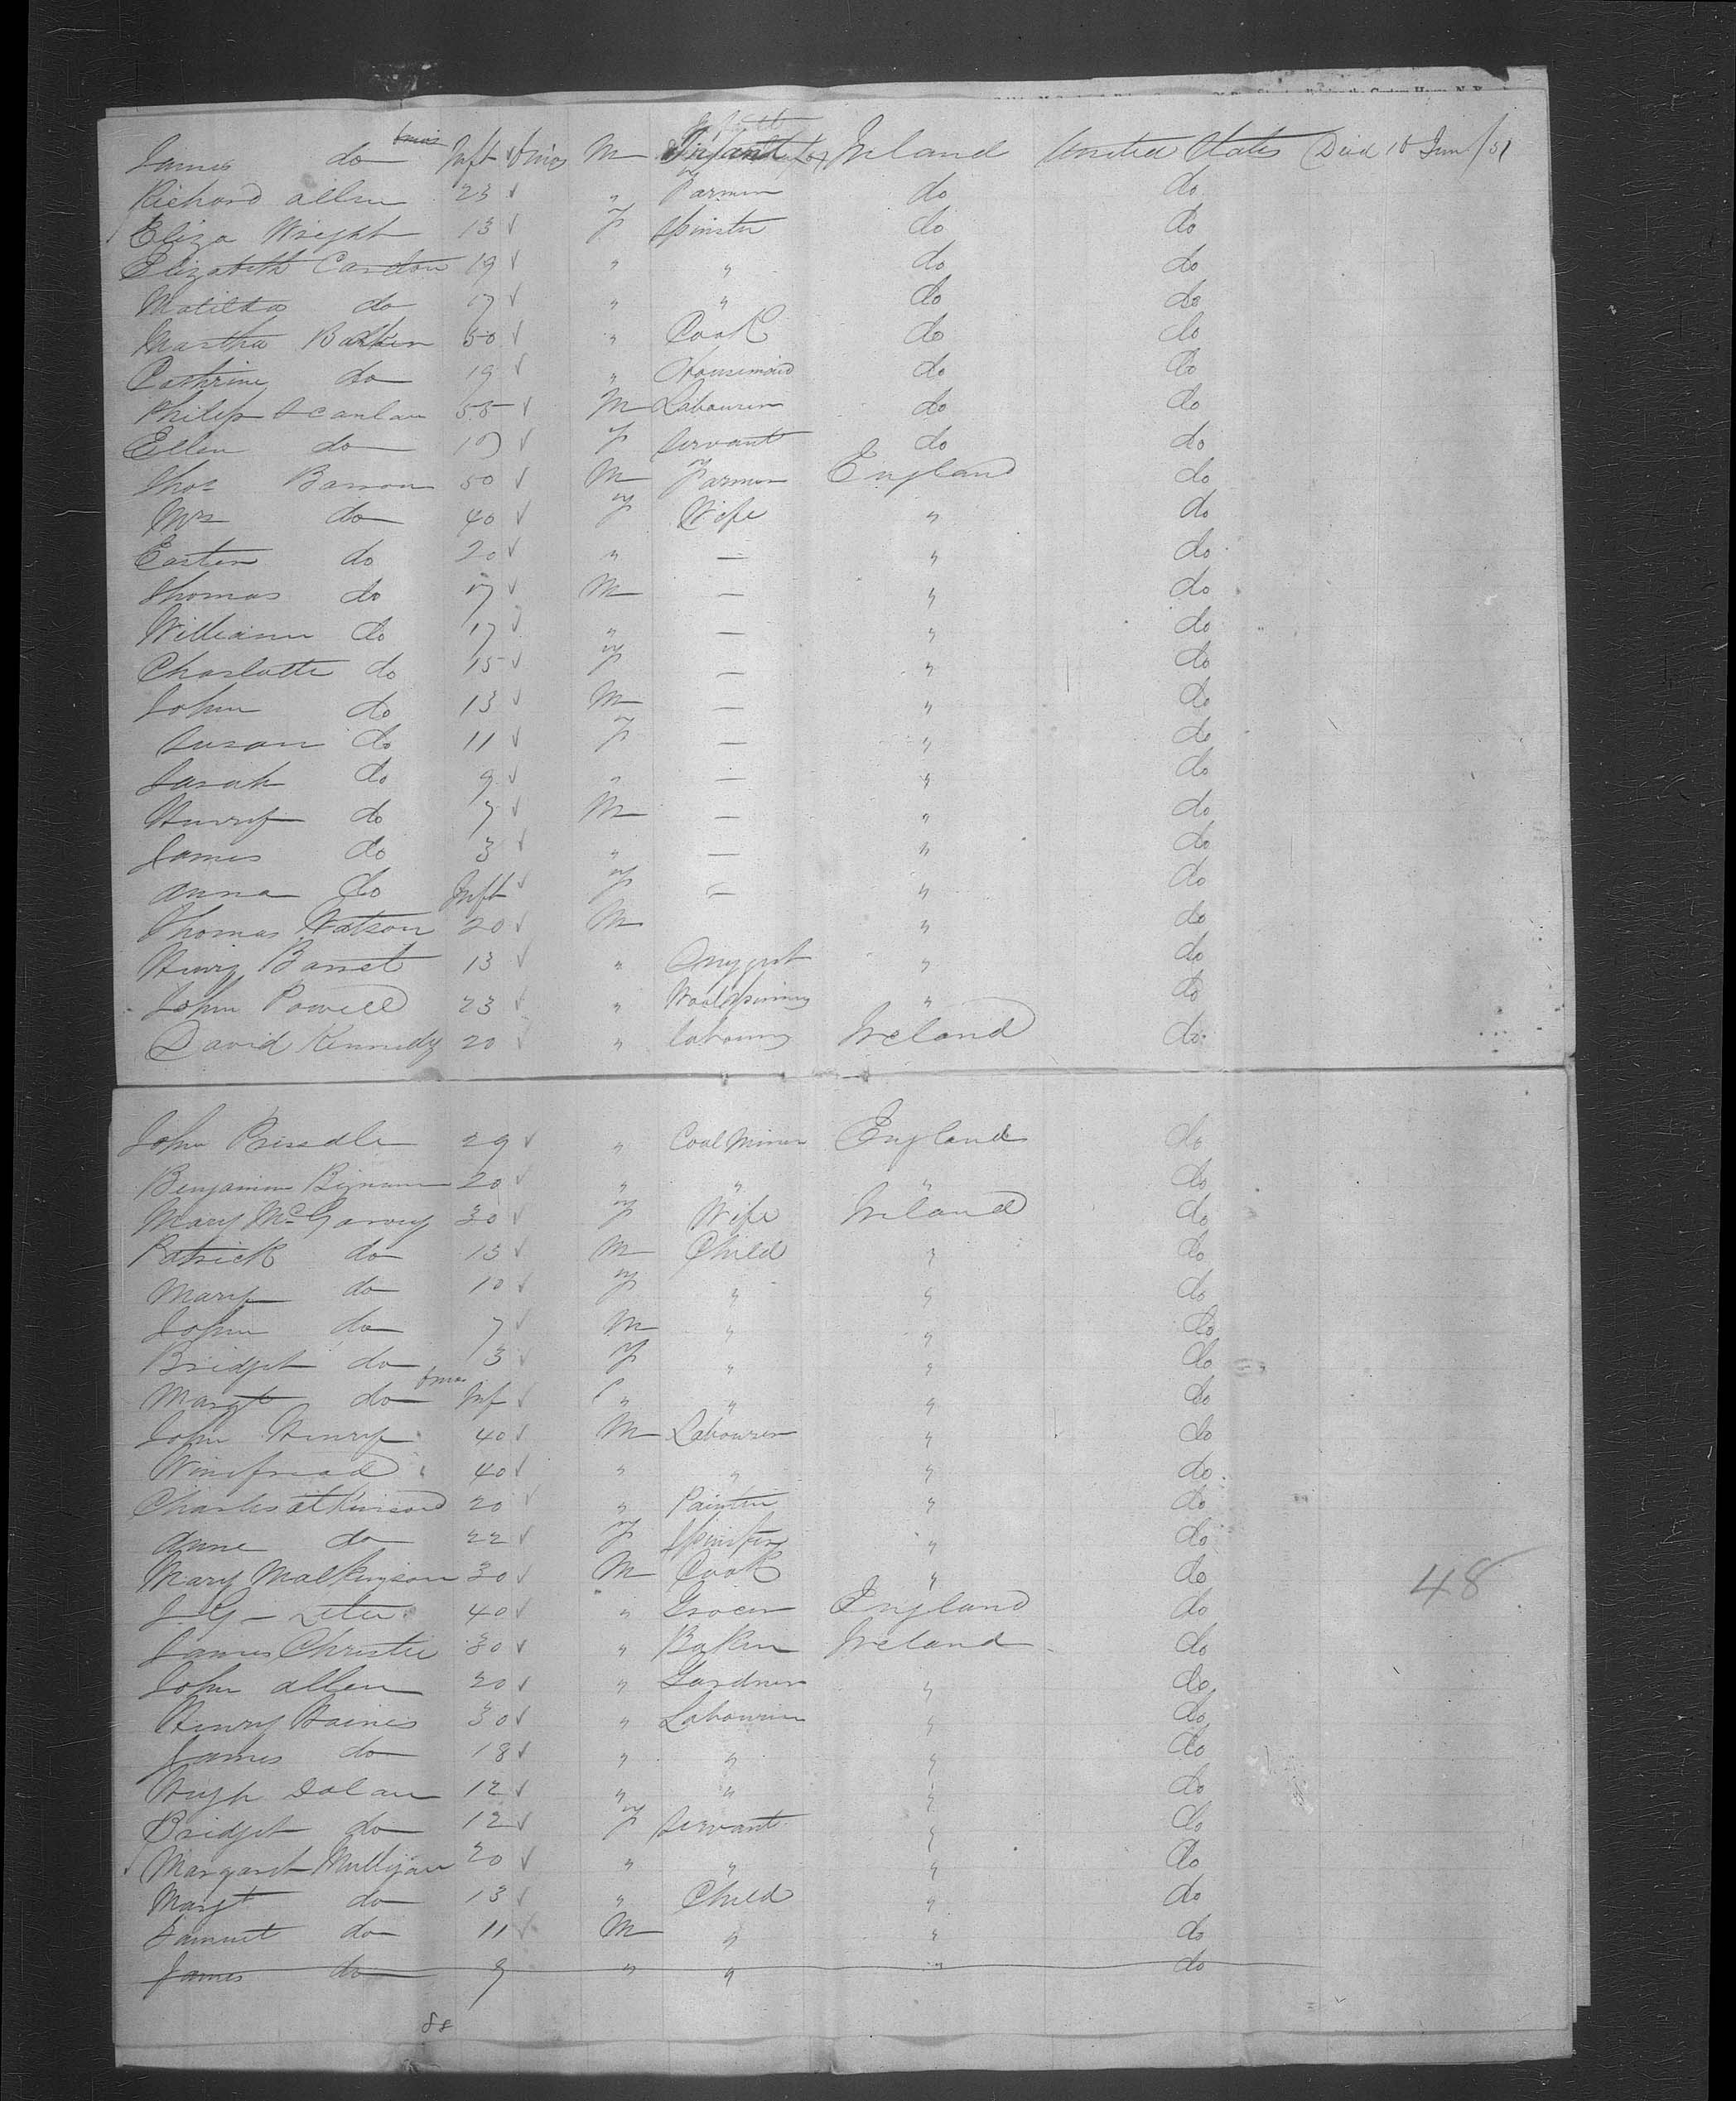 James do Inft 6 mos M Infant Ireland United States Died 10 June/51
Richard Allen 23 " Farmer do do
Eliza Wright 13 F Spinster do do
Elizabeth Cardon 19 " " do do
Matilda do 17 " " do do
Martha Barker 50 " Cook do do
Cathrine do 19 " Housemaid do do
Philip Scanlan 55 M Labourer do do
Ellen do 17 F Servant do do
Thos Barron 50 M Farmer England do
Mrs do 40 F Wife " do
Easter do 20 " — " do
Thomas do 17 M — " do
William do 17 " — " do
Charlotte do 15 F — " do
John do 13 M — " do
Susan do 11 F — " do
Sarah do 9 " — " do
Henry do 7 M — " do
James do 3 " — " do
Anna do Inft F — " do
Thomas Watson 20 M " do
Henry Barret 13 " " do
John Powell 23 " Woolspinner " do
David Kennedy 20 " labourer Ireland do
John 29 " Coal Miner England do
Benjamin 20 " " " do
Mary McGarvey 30 F Wife Ireland do
Patrick do 13 M Child " do
Mary do 10 F " " do
John do 7 M " " do
Bridget do 3 F " " do
Margt do 6 mos Inf " " " do
John Henry 40 M Labourer " do
Winefread " 40 " " " do
Charles Atkinson 20 " Painter " do
Anne do 22 F Spinster " do
Mary Malkinson 30 M Cook " do
J G 40 " Grocer England do
James Christie 30 " Baker Ireland do
John Allen 20 " Gardner " do
Henry Haines 30 " Labourer " do
James do 18 " " " do
Hugh Dolan 12 " " " do
Bridget do 12 F Servant " do
Margaret Mulligan 20 " " " do
Margt do 13 " Child " do
Samuel do 11 M " " do
James do 9 " " " do
48
88